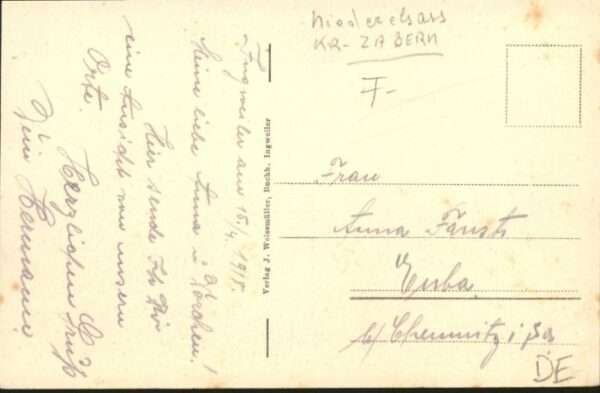 Niederelsass
KR-ZABERN
F-
Ingweiler am 15/4. 1918.
Meine liebe Anna u.
Hier sende Ich Dir
eine Ansicht von unsern
Orte.
Herzlichen Gruß
Dein Hermann.
Verlag J. Weissmüller, Buchh. Ingweiler
Frau
Anna
Euba
b/ Chemnitz i/Sa
DE